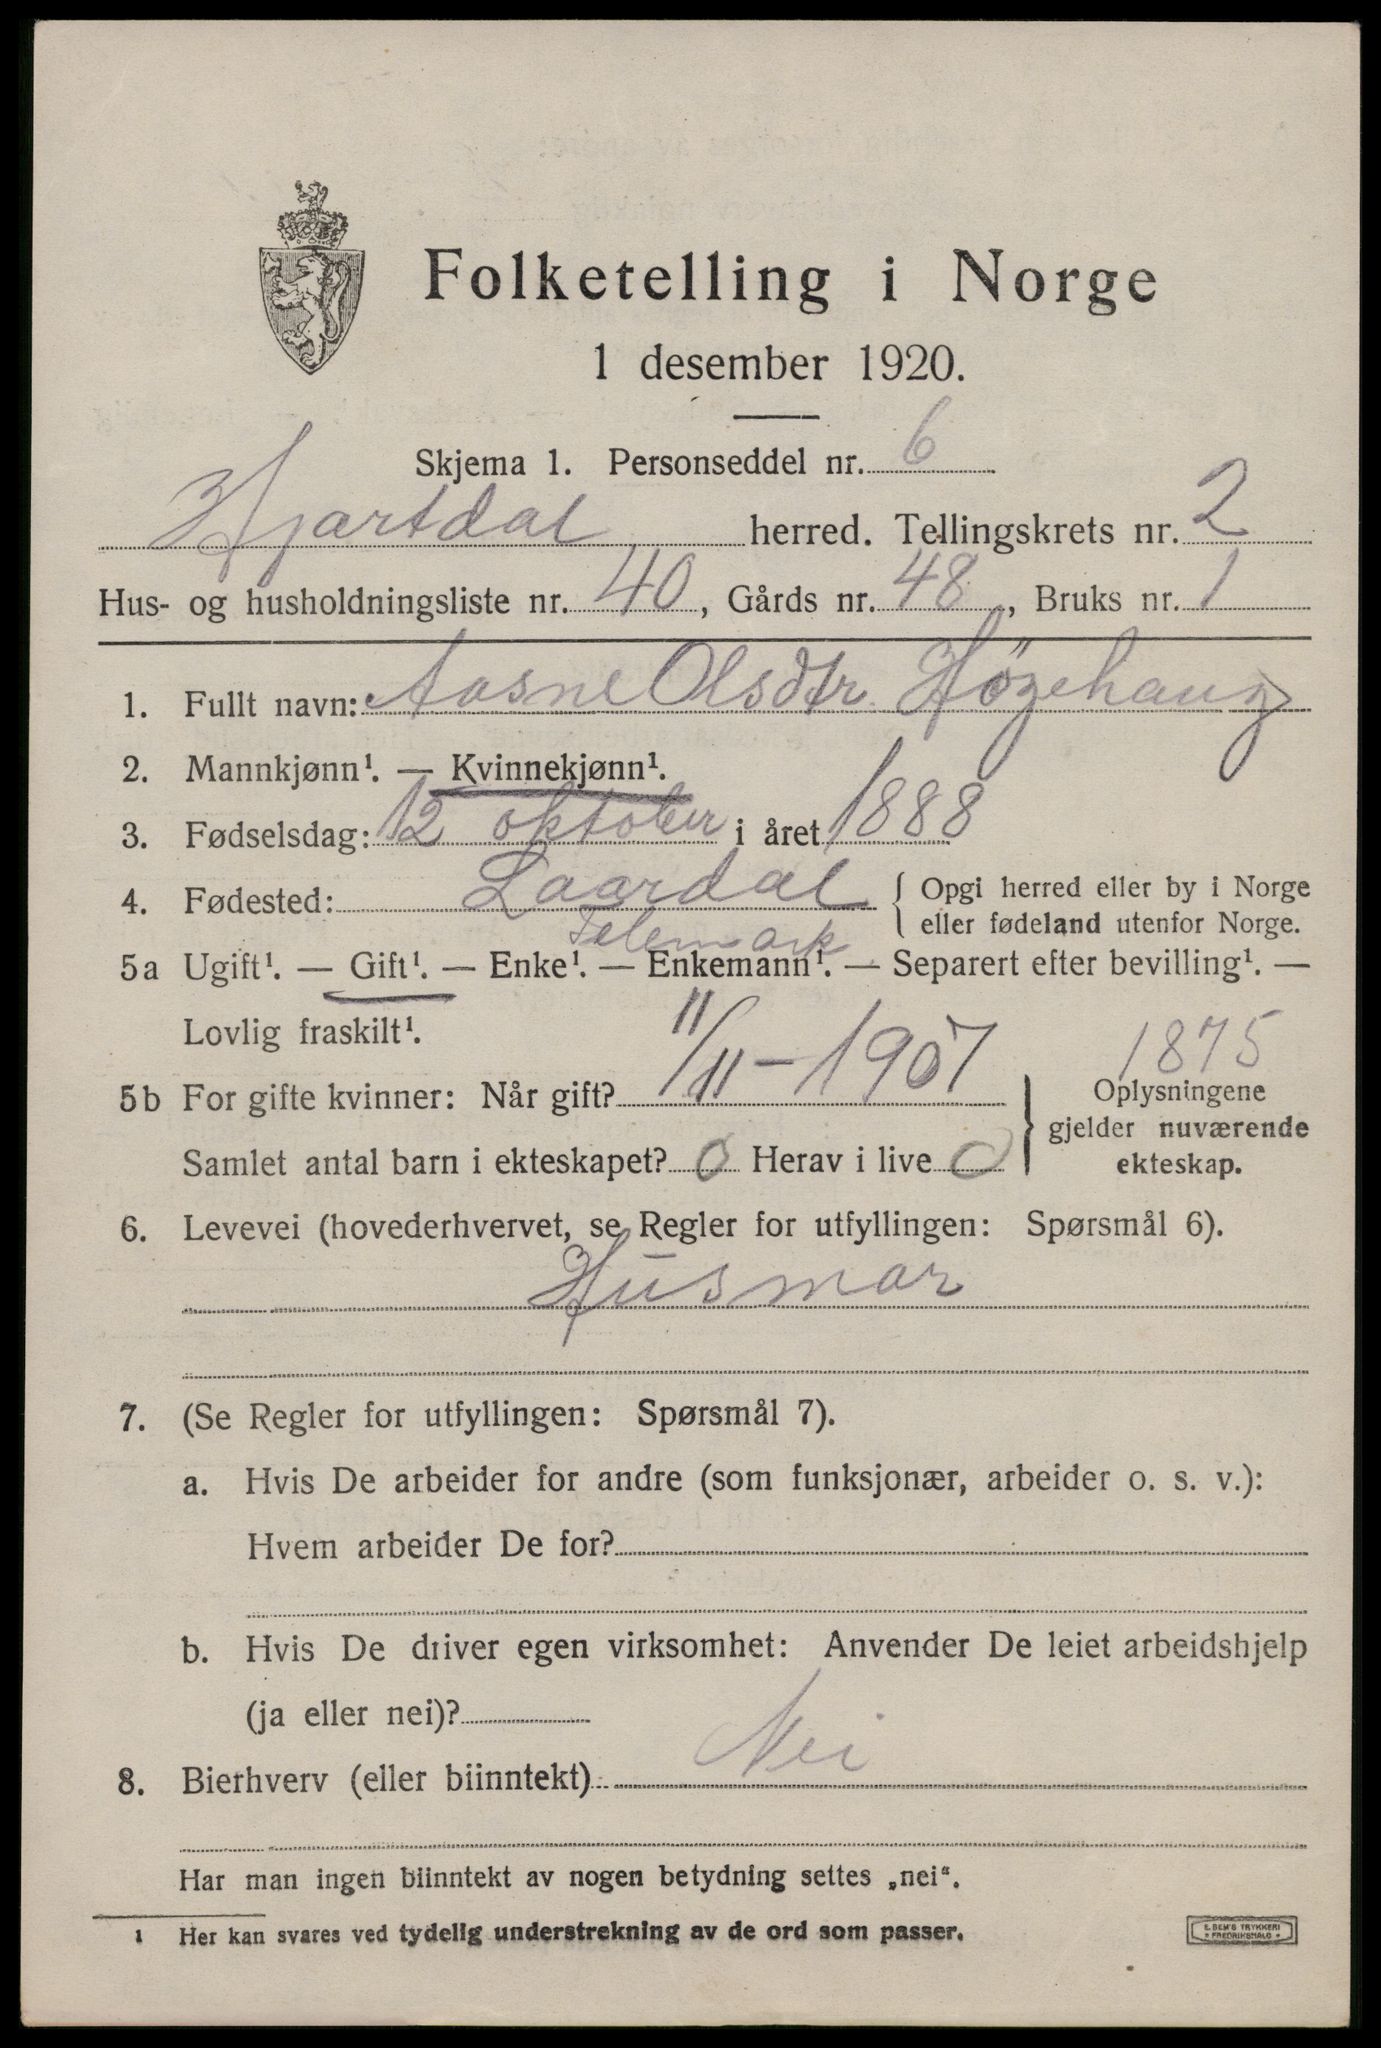 Folketelling i Norge
1 desember 1920.
Skjema 1. Personseddel nr. 6
Hjartdal herred. Tellingskrets nr. 2
Hus- og husholdningsliste nr. 40, Gårds nr. 48, Bruks nr. 1
1. Fullt navn: Aasne Olsdtr. Høgehaug
2. Mannkjønn¹. — Kvinnekjønn¹.
3. Fødselsdag: 12 oktober i året 1888
4. Fødested: Laardal { Opgi herred eller by i Norge
eller fødeland utenfor Norge.
Telemark
5a Ugift¹. — Gift¹. — Enke¹. — Enkemann¹. — Separert efter bevilling¹. —
Lovlig fraskilt¹.
5b For gifte kvinner: Når gift? 11/11 - 1907
1875
Samlet antal barn i ekteskapet? 0 Herav i live 0
} Oplysningene
gjelder nuværende
ekteskap.
6. Levevei (hovederhvervet, se Regler for utfyllingen: Spørsmål 6).
Husmor
7. (Se Regler for utfyllingen: Spørsmål 7).
a. Hvis De arbeider for andre (som funksjonær, arbeider o. s. v.):
Hvem arbeider De for?
b. Hvis De driver egen virksomhet: Anvender De leiet arbeidshjelp
(ja eller nei)?
8. Bierhverv (eller biinntekt) Nei
Har man ingen biinntekt av nogen betydning settes „nei“.
1 Her kan svares ved tydelig understrekning av de ord som passer.
E. SEM'S TRYKKERI
* FREDRIKSHALD *